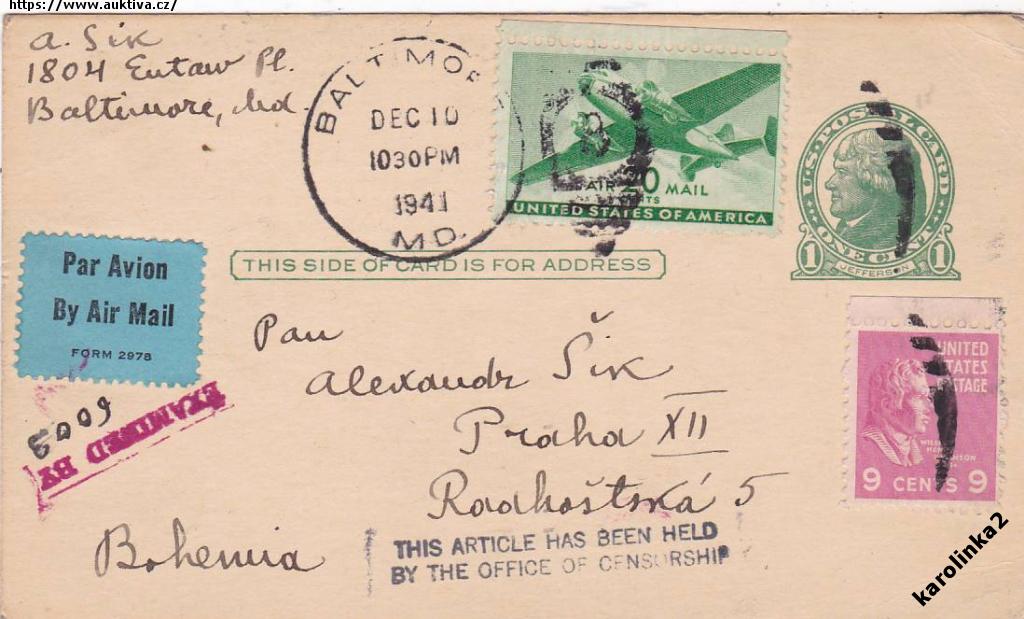 https://www.auktiva.cz/
A. Šik
1804 Eutaw Pl.
Baltimore, Md.
BALTIMOR
DEC 10
1030 PM
1941
MD.
AIR 20 MAIL
CENTS
UNITED STATES OF AMERICA
U.S. POSTAL CARD
1 ONE CENT 1
JEFFERSON
THIS SIDE OF CARD IS FOR ADDRESS
Par Avion
By Air Mail
FORM 2978
Pan
Alexandr Šik
Praha XII
Radhoštská 5
Bohemia
UNITED
STATES
POSTAGE
9 CENTS 9
EXAMINED BY
6009
THIS ARTICLE HAS BEEN HELD
BY THE OFFICE OF CENSORSHIP
karolinka2